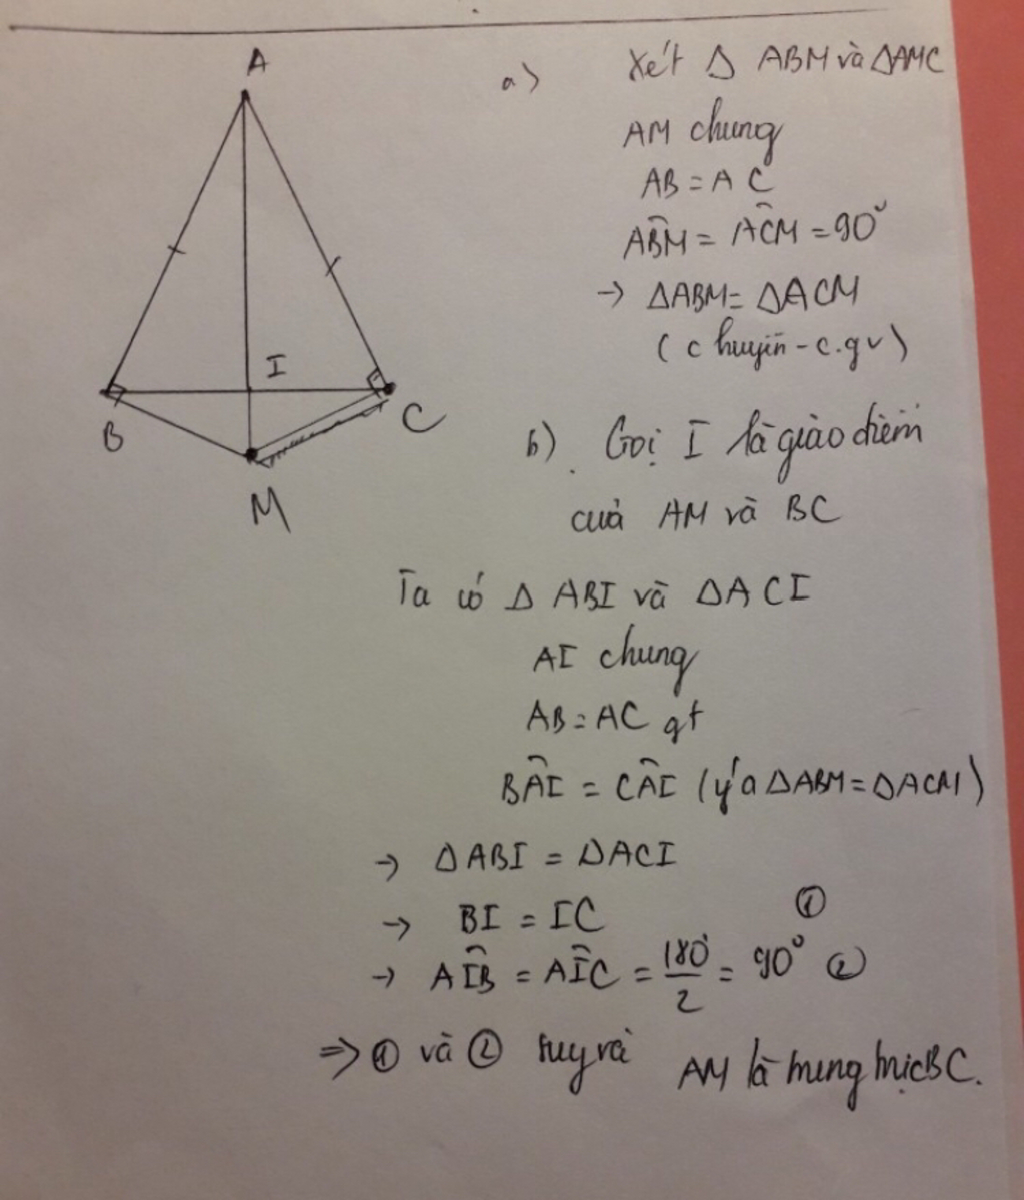 A
I
B
C
M
a) Xét Δ ABM và ΔAMC
AM chung
AB = AC
ABM̂ = ACM̂ = 90°
→ ΔABM = ΔACM
(c huyền - c.gv)
b). Gọi I là giào điểm
cuả AM và BC
Ta có Δ ABI và ΔACI
AI chung
AB = AC gt
BAÎ = CAÎ (ý a ΔABM = ΔACM)
→ ΔABI = ΔACI
→ BI = IC ①
→ AIB̂ = AIĈ = 180°/2 = 90° ②
⇒ ① và ② suy và AM là trung trực BC.